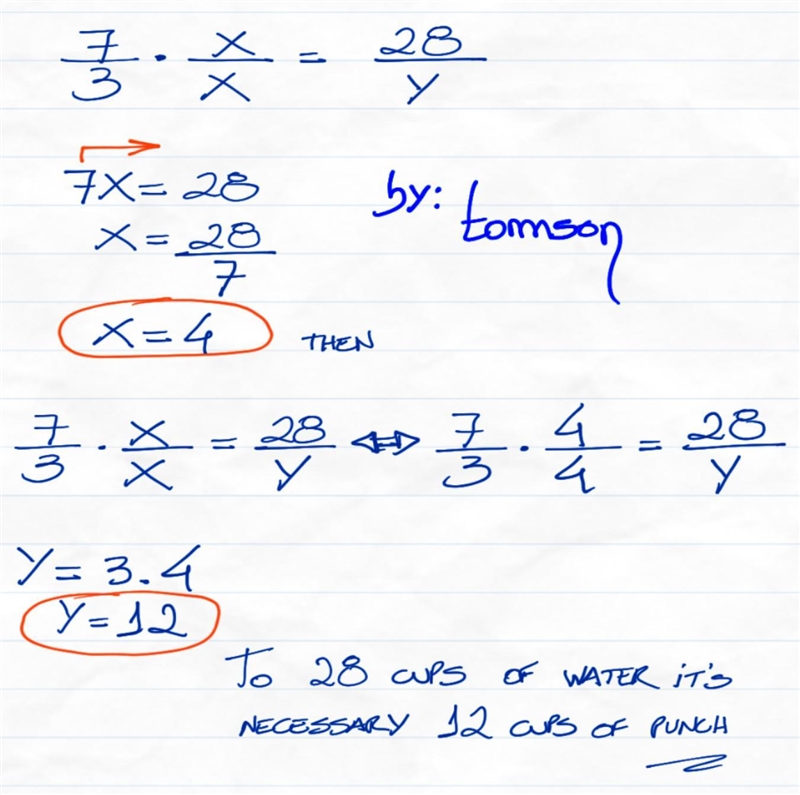 7/3 · x/x = 28/y
7x = 28
x = 28/7
by: tomson
x = 4 THEN
7/3 · x/x = 28/y ⇔ 7/3 · 4/4 = 28/y
y = 3.4
y = 12
To 28 cups of water it's
necessary 12 cups of punch